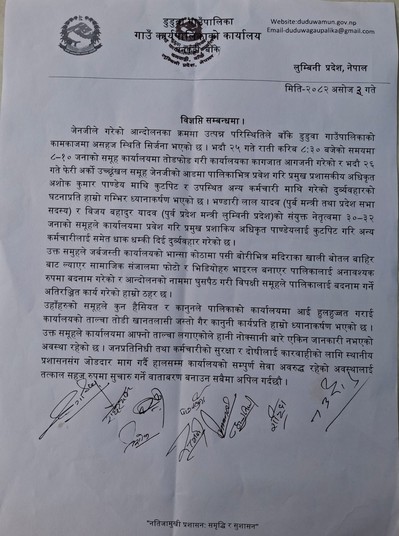 डुडुवा गाउँपालिका
गाउँ कार्यपालिकाको कार्यालय
बाँके
लुम्बिनी प्रदेश, नेपाल
Website:duduwamun.gov.np
Email-duduwagaupalika@gmail.com
लुम्बिनी प्रदेश, नेपाल
मिति-२०८२ असोज ३ गते
विज्ञप्ति सम्बन्धमा ।
जेनजीले गरेको आन्दोलनका क्रममा उत्पन्न परिस्थितिले बाँके डुडुवा गाउँपालिकाको
कामकाजमा असहज स्थिति सिर्जना भएको छ । भदौ २५ गते राती करिब ८:३० बजेको समयमा
८-१० जनाको समूह कार्यालयमा तोडफोड गरी कार्यालयका कागजात आगजनी गरेको र भदौ २६
गते फेरी अर्को उच्छृंखल समूह जेनजीको आडमा पालिकाभित्र प्रवेश गरि प्रमुख प्रशासकीय अधिकृत
अशोक कुमार पाण्डेय माथि कुटपिट र उपस्थित अन्य कर्मचारी माथि गरेको दुर्व्यबहारको
घटनाप्रति हाम्रो गम्भिर ध्यानाकर्षण भएको छ । भण्डारी लाल यादव (पुर्ब मन्त्री तथा प्रदेश सभा
सदस्य) र विजय बहादुर यादव (पुर्व प्रदेश मन्त्री लुम्बिनी प्रदेश)को संयुक्त नेतृत्वमा ३०-३२
जनाको समूहले कार्यालयमा प्रवेश गरि प्रमुख प्रशाकिय अधिकृत पाण्डेयलाई कुटपिट गरि अन्य
कर्मचारीलाई समेत धाक धम्की दिई दुर्व्यबहार गरेको छ ।
उक्त समुहले जर्बजस्ती कार्यालयको भान्सा कोठामा पसी बोरीभित्र मदिराका खाली बोतल बाहिर
बाट ल्याएर सामाजिक संजालमा फोटो र भिडियोहरु भाइरल बनाएर पालिकालाई अनावश्यक
रुपमा बदनाम गरेको र आन्दोलनको नाममा घुसपैठ गरी बिपक्षी समूहले पालिकालाई बदनाम गर्ने
अतिरञ्जित कार्य गरेको हाम्रो ठहर छ ।
उहाँहरुको समूहले कुन हैसियत र कानुनले पालिकाको कार्यालयमा आई हुलहुज्जत गराई
कार्यालयको ताल्चा तोडी खानतलासी जस्तो गैर कानुनी कार्यप्रति हाम्रो ध्यानाकर्षण भएको छ ।
उक्त समूहले कार्यालयमा आफ्नो ताल्चा लगाएकोले हानी नोक्सानी बारे एकिन जानकारी नभएको
अवस्था रहेको छ । जनप्रतिनिधी तथा कर्मचारीको सुरक्षा र दोषीलाई कारवाहीको लागि स्थानीय
प्रशासनसंग जोडदार माग गर्दै हालसम्म कार्यालयको सम्पूर्ण सेवा अवरुद्ध रहेको अवस्थालाई
तत्काल सहज रुपमा सुचारु गर्ने वाताबरण बनाउन सबैमा अपिल गर्दछौं ।
"नतिजामुखी प्रशासन: समृद्धि र सुशासन"